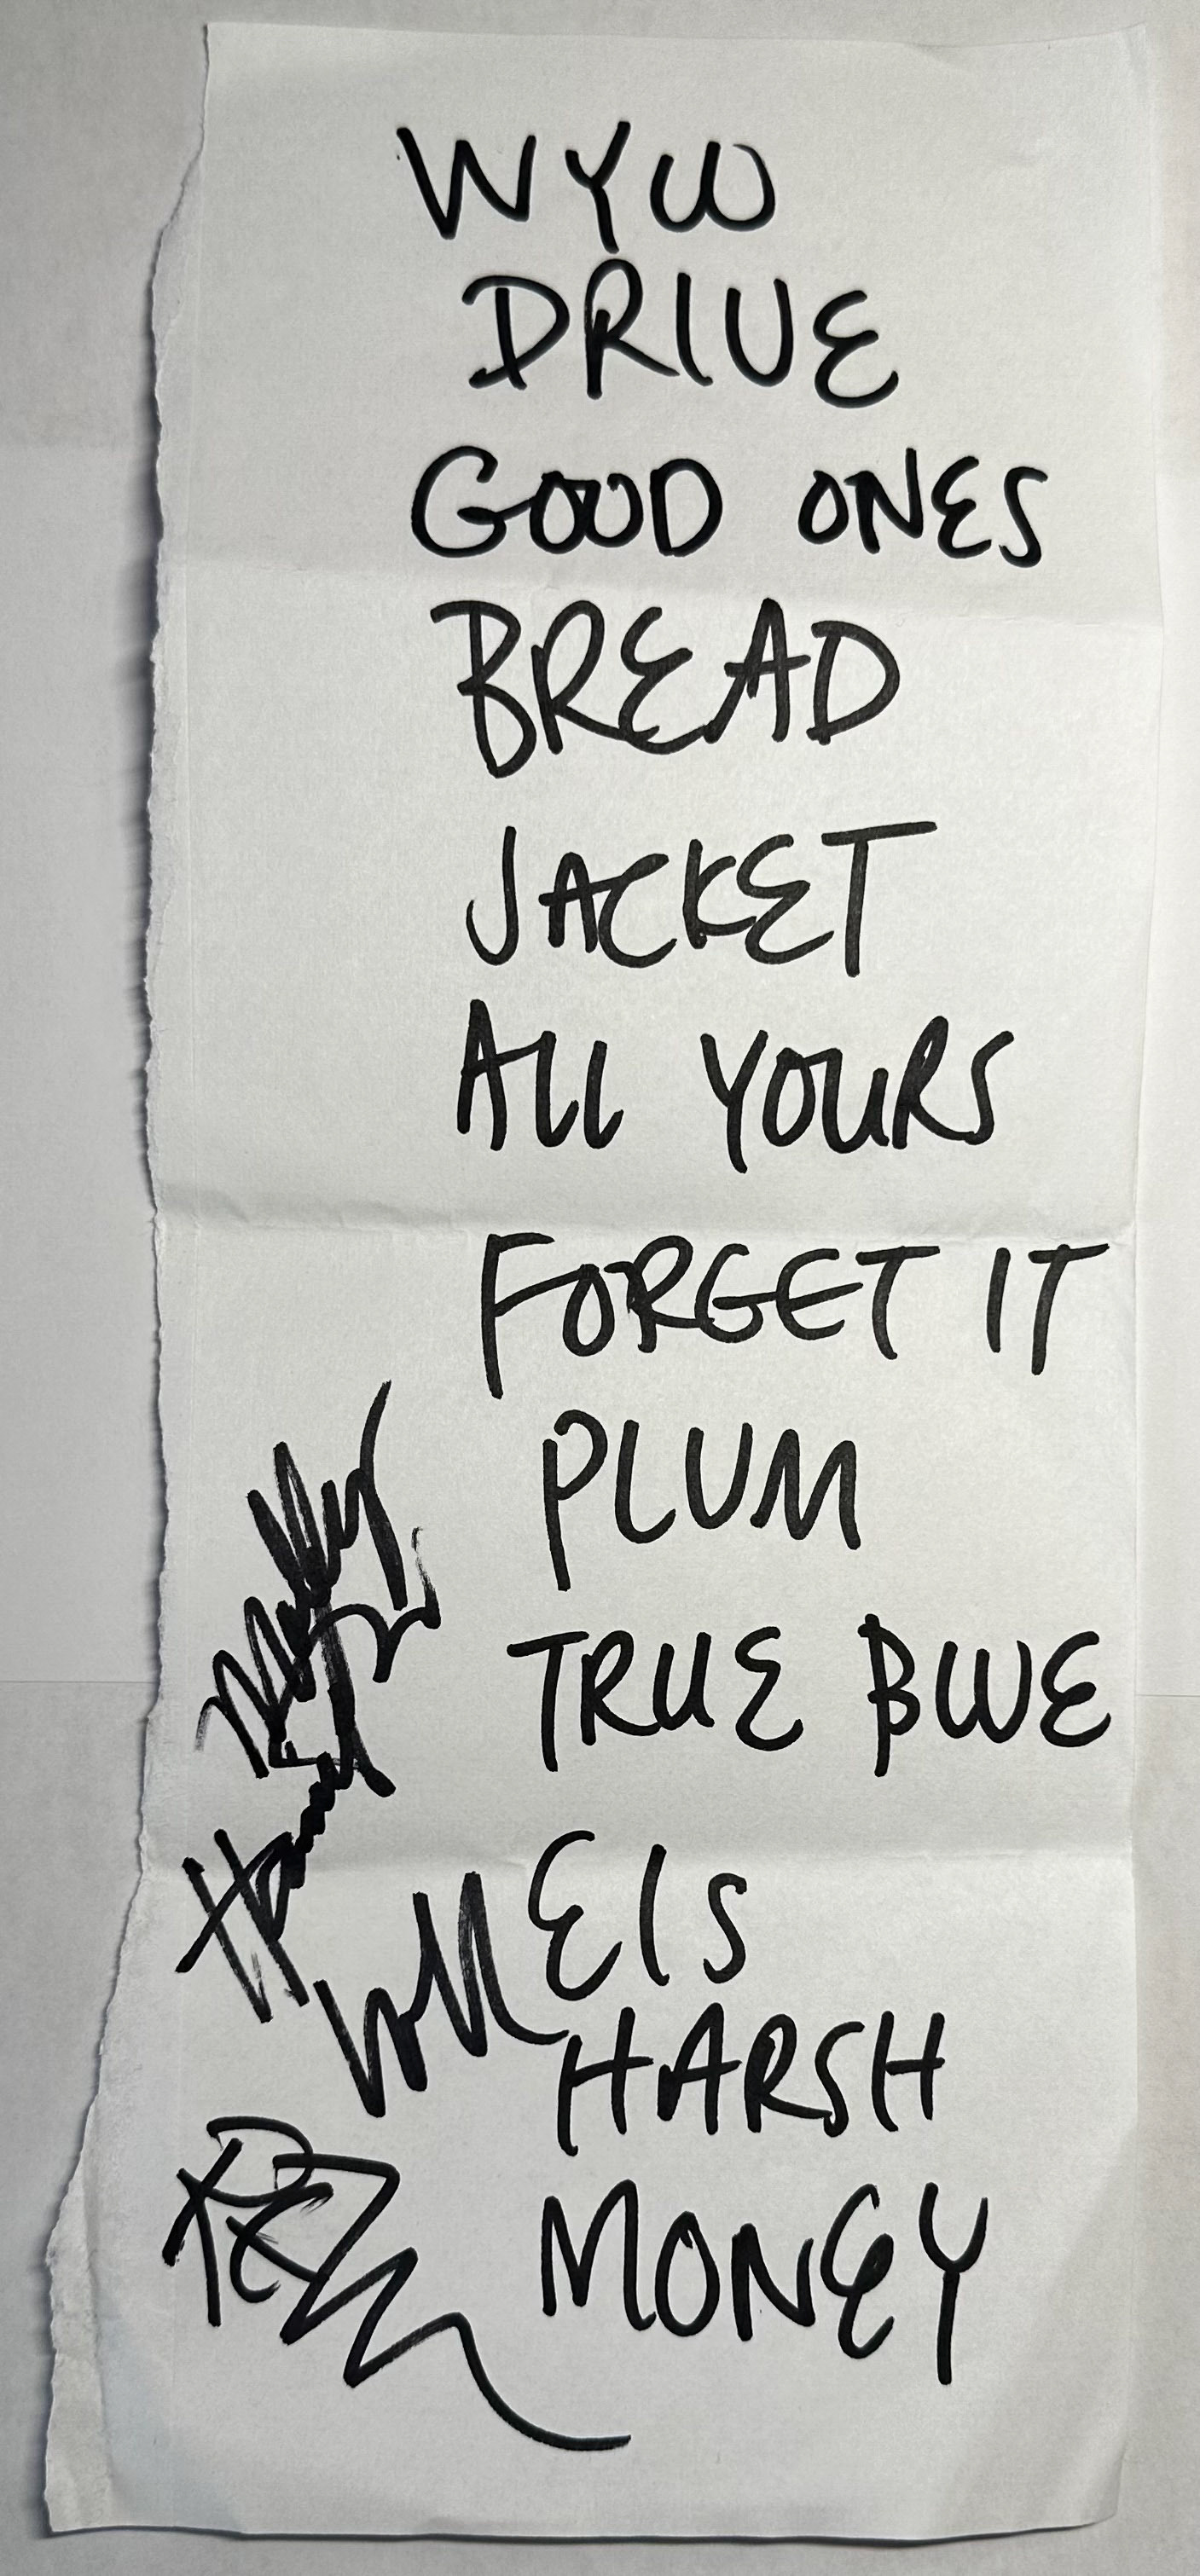 WYW
DRIVE
GOOD ONES
BREAD
JACKET
ALL YOURS
FORGET IT
PLUM
TRUE BLUE
EIS
HARSH
MONEY
Molly
Will